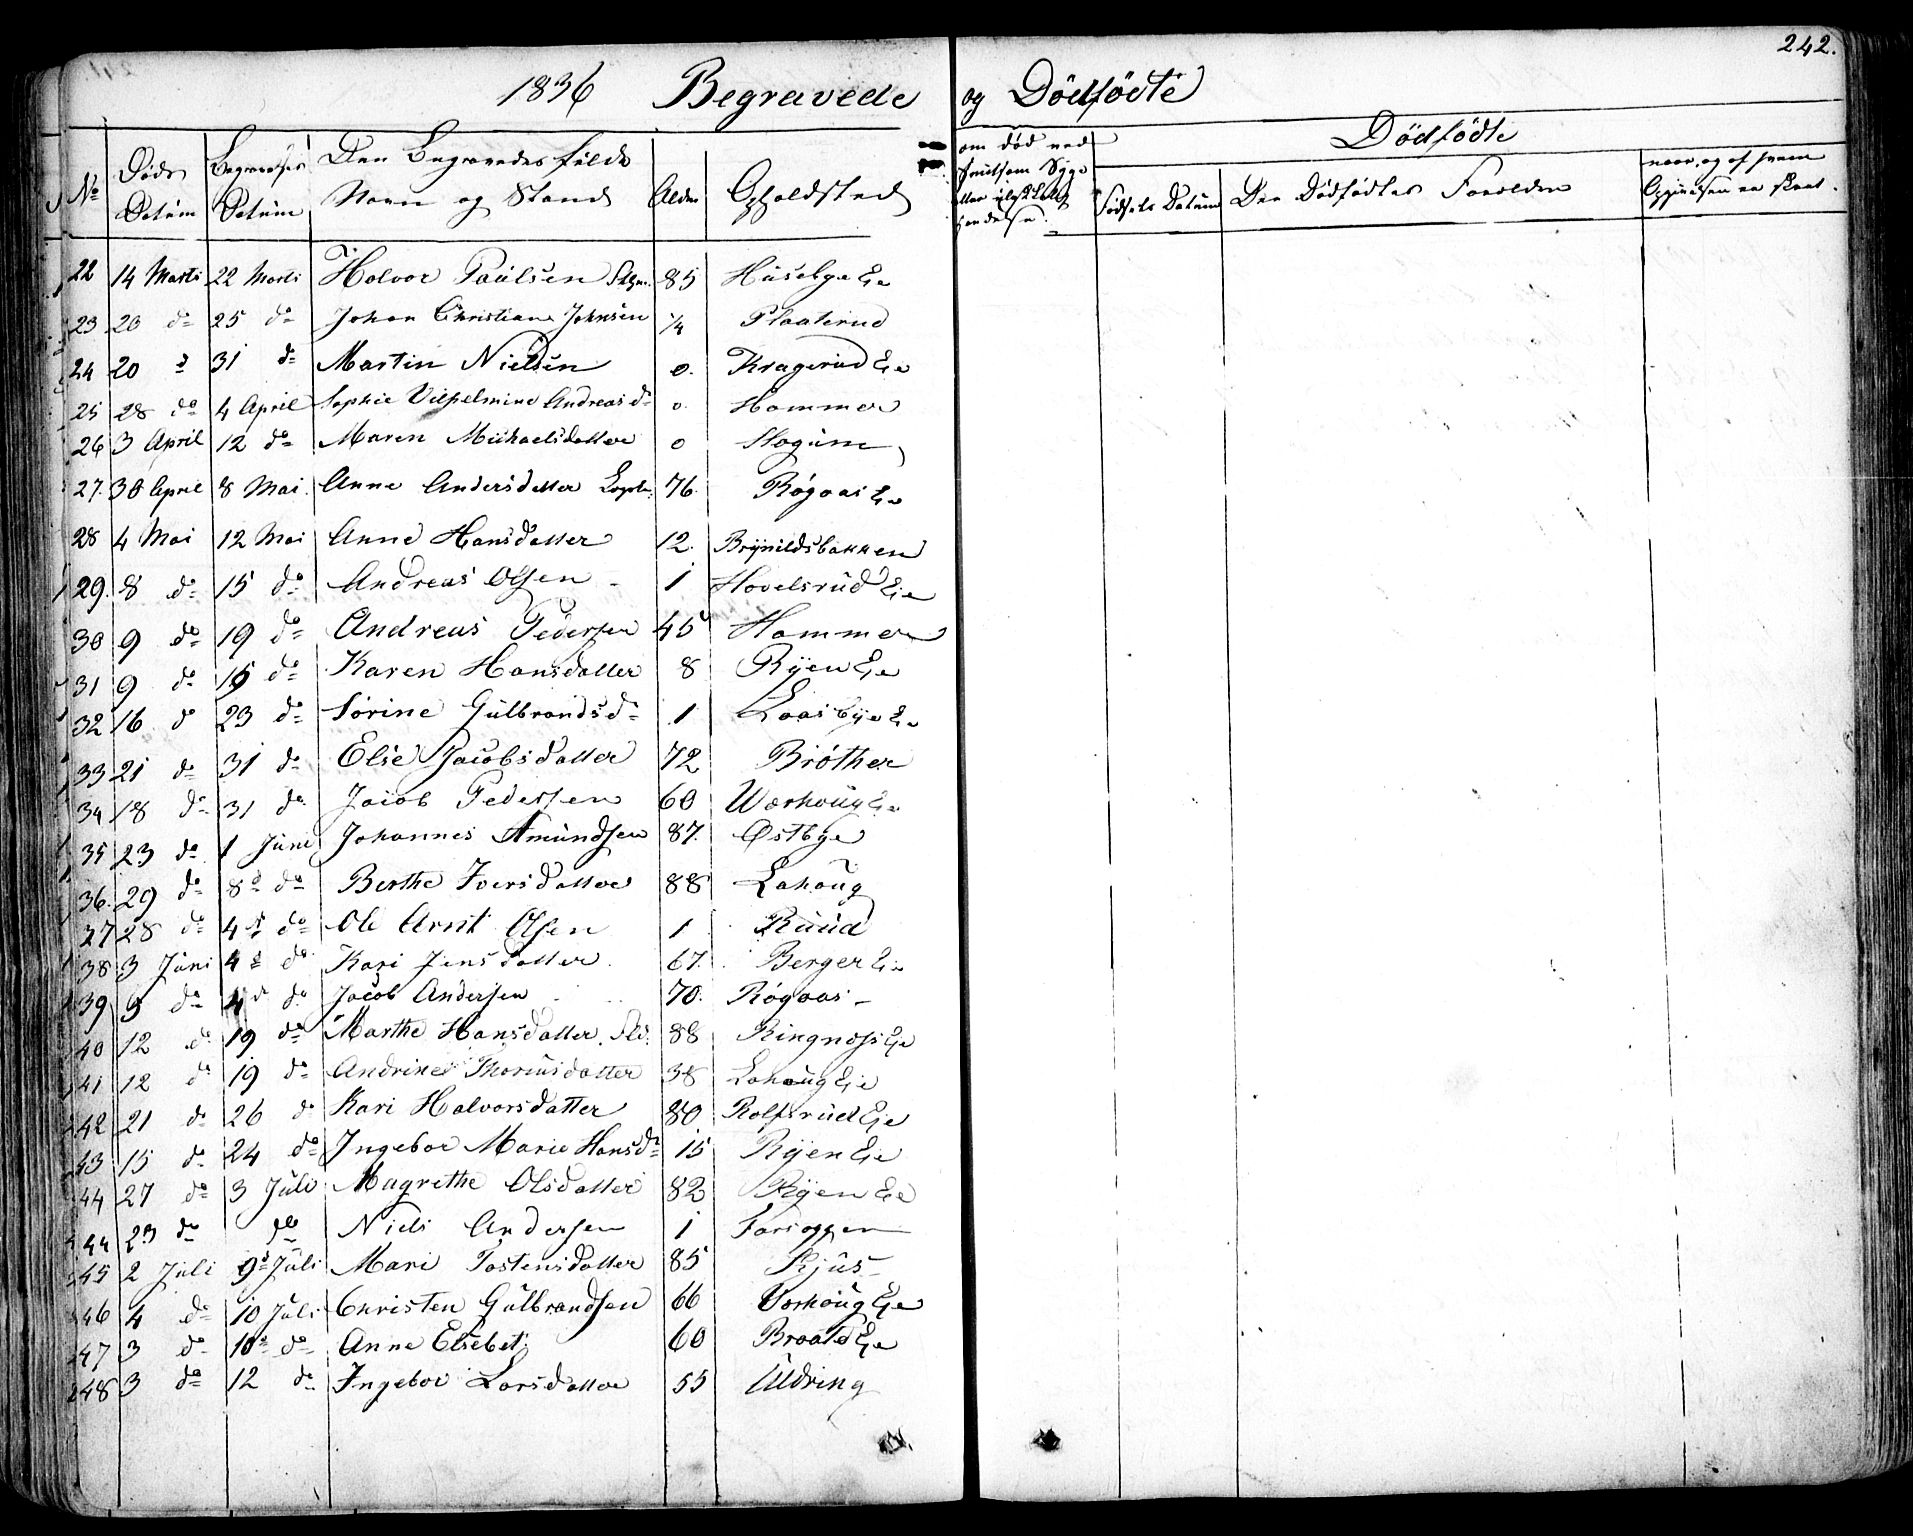 242.
1836 Begravede og Dödfödte
No Döds Datum Begravelses Datum Den Begravedes fulde Navn og Stand Alder Opholdsted om död ved smitsom Syge eller ulykkelig hendelse. Dödfödte
Födsels Datum Den Dödfödtes Forældre naar, og af hvem Opgivelsen er skeet.
22 14 Marti 22 Marti Halvor Paulsen 85 Husebye Eie
23 20 do 25 do Johan Christian Johnsen 1/4 Plaaterud
24 20 d 31 do Martin Nielsen 0. Kragerud Eie
25 28 do 4 April Sophie Vilhelmine Andreasd. 0. Hammer
26 3 April 12 do Maren Michaelsdatter 0 Hogum
27. 30 April 8 Mai. Anne Andersdatter 76. Rögaas Eie
28 4 Mai 12 Mai Anne Hansdatter 12. Brynildsbakken
29. 8 do 15 do Andreas Olsen 1 Hovelsrud Eie
30 9 do 19 do Andreas Pedersen 45 Hammer
31 9 do 15 do Karen Hansdatter 8 Ryen Eie
32 16 d 23 do Sörine Gulbrandsd. 1 Laasbye Eie
33 21 do 31 do Elie Jacobsdatter 72 Bröther
34 18 do 31 do Jacob Pedersen 60 Warhoug Eie
35 23 do 1 Juni Johannes Amundsen 87. Østbye
36. 29 do 8d do Berthe Iversdatter 88 Lahoug
37 28 do 4d do Ole Arnt Olsen 1 Ruud
38 3 Juni 4d do Kari Jensdatter 67. Berger Eie
39 3 do 4d do Jacob Andersen 70. Rögaas
40 12 d 19 do Marthe Hansdatter 88 Ringnæs Eie
41 12 do 19 do Andrine Thoriusdatter 38 Lahoug Eie
42 21 do 26 do Kari Halvorsdatter 80 Rolfsrud Eie
43 15 do 24 do Ingebor Marie Hansd. 15 Ryen Eie
44 27 do 3 Juli Magrethe Olsdatter 82 Ryen Eie
44 23 do do Niels Andersen 1 Farseggen
45 2 Juli 9d Juli Mari Tostensdatter 85 Rjus
46 4 do 10 Juli Christen Gulbrandsen 66 Varhoug Eie
47 3 do 10d do Anne Elsebet 60 Braated Eie
48 3 do 12 do Ingebor Larsdatter 55 Uldring